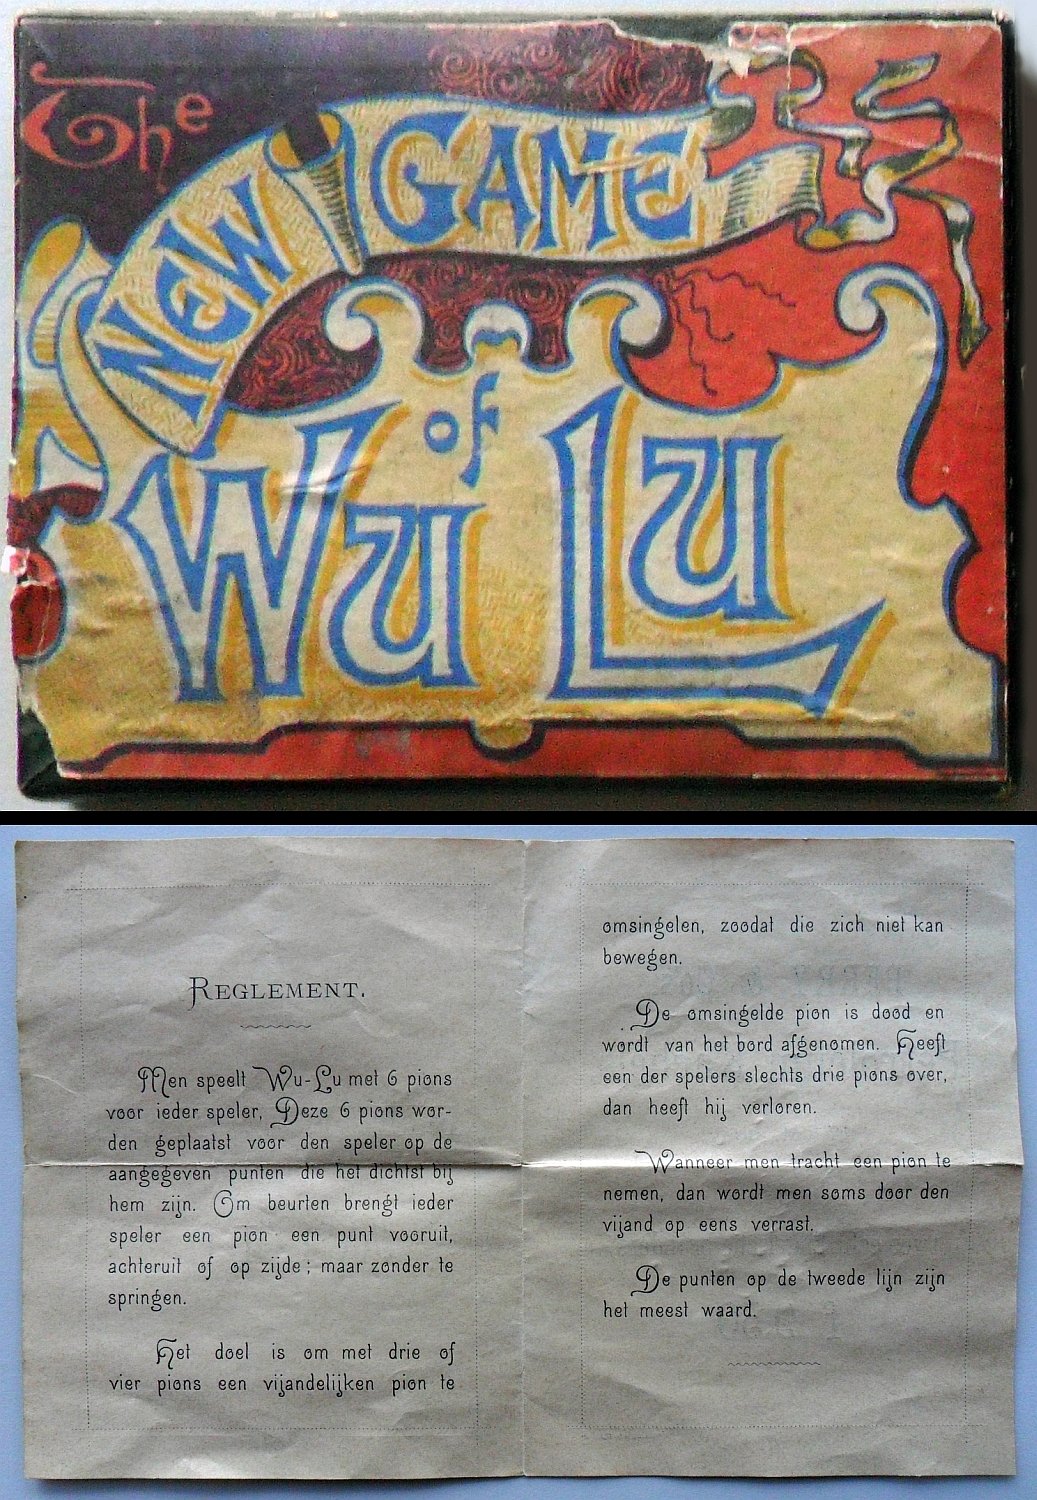 The
NEW GAME
of
WU LU
REGLEMENT.
Men speelt Wu-Lu met 6 pions
voor ieder speler, Deze 6 pions wor-
den geplaatst voor den speler op de
aangegeven punten die het dichtst bij
hem zijn. Om beurten brengt ieder
speler een pion een punt vooruit,
achteruit of op zijde; maar zonder te
springen.
Het doel is om met drie of
vier pions een vijandelijken pion te
omsingelen, zoodat die zich niet kan
bewegen.
De omsingelde pion is dood en
wordt van het bord afgenomen. Heeft
een der spelers slechts drie pions over,
dan heeft hij verloren.
Wanneer men tracht een pion te
nemen, dan wordt men soms door den
vijand op eens verrast.
De punten op de tweede lijn zijn
het meest waard.